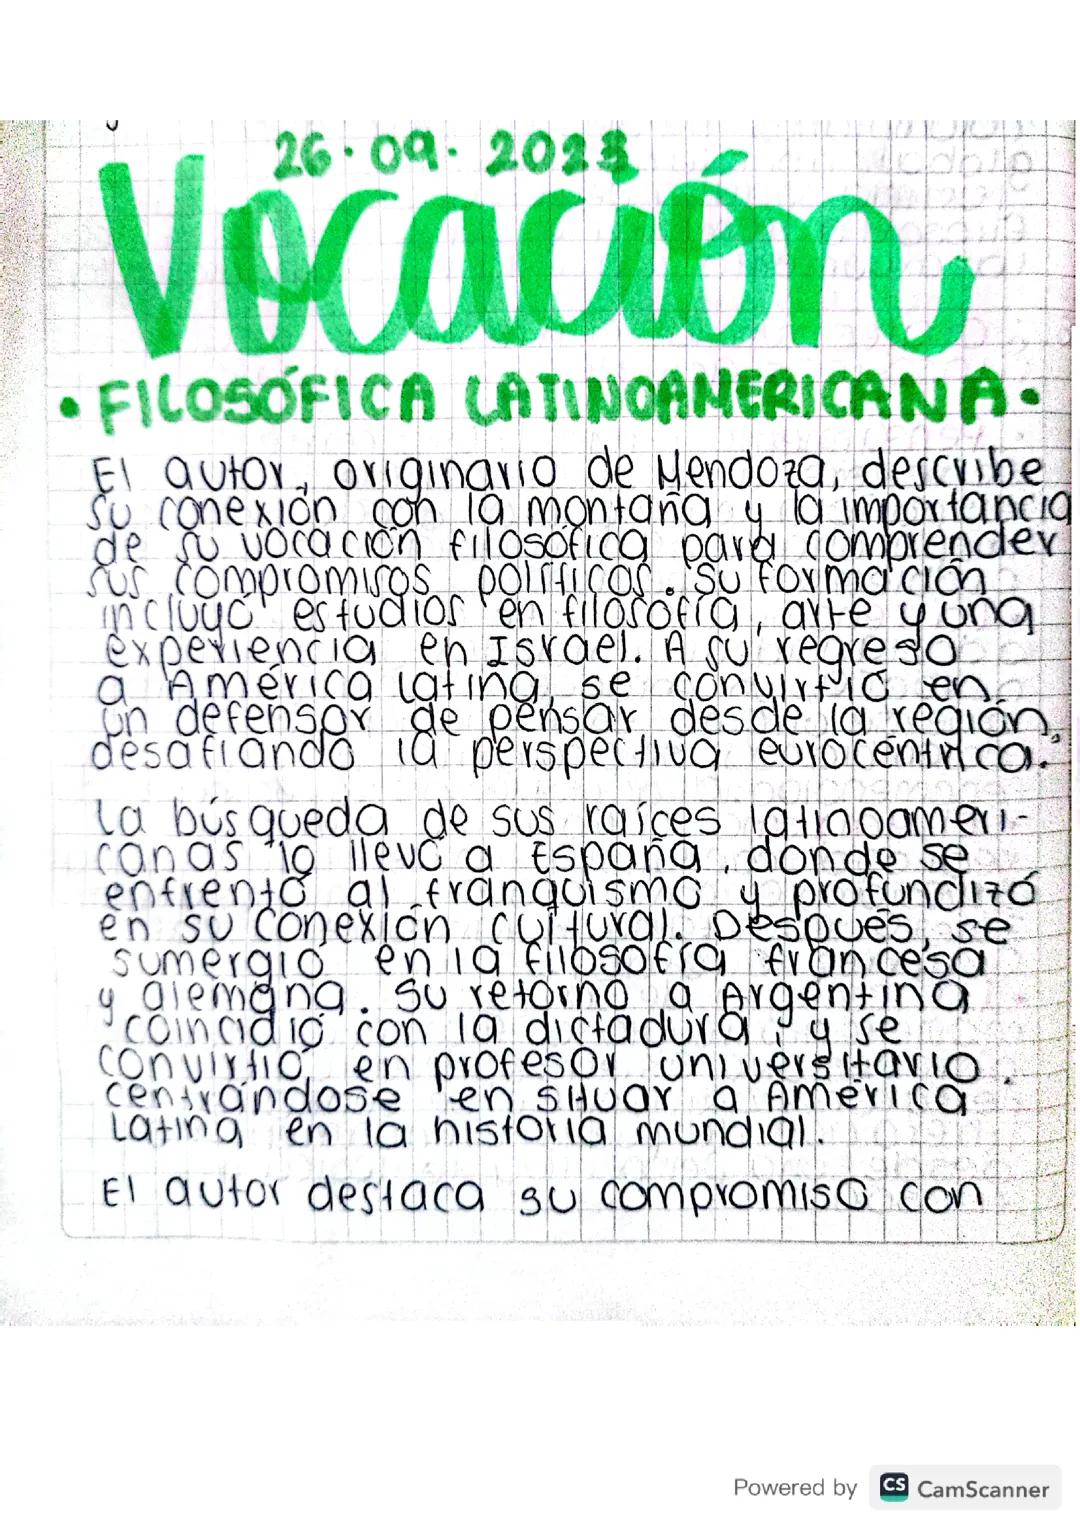 26.09.2023
Vocación
• FILOSÓFICA LATINOAMERICANA •
El autor, originario de Mendoza, describe
su conexión con la montaña y la importancia
de su vocación filosófica para comprender
sus compromisos políticos. Su formación
incluyó estudios en filosofía, arte y una
experiencia en Israel. A su regreso
a América Latina, se convirtió en
un defensor de pensar desde la región,
desafiando la perspectiva eurocéntrica.
La búsqueda de sus raíces latinoameri-
canas lo llevó a España, donde se
enfrentó al franquismo y profundizó
en su conexión cultural. Después, se
sumergió en la filosofía francesa
y alemana. Su retorno a Argentina
coincidió con la dictadura, y se
convirtió en profesor universitario,
centrándose en situar a América
Latina en la historia mundial.
El autor destaca su compromiso con
Powered by CS CamScanner